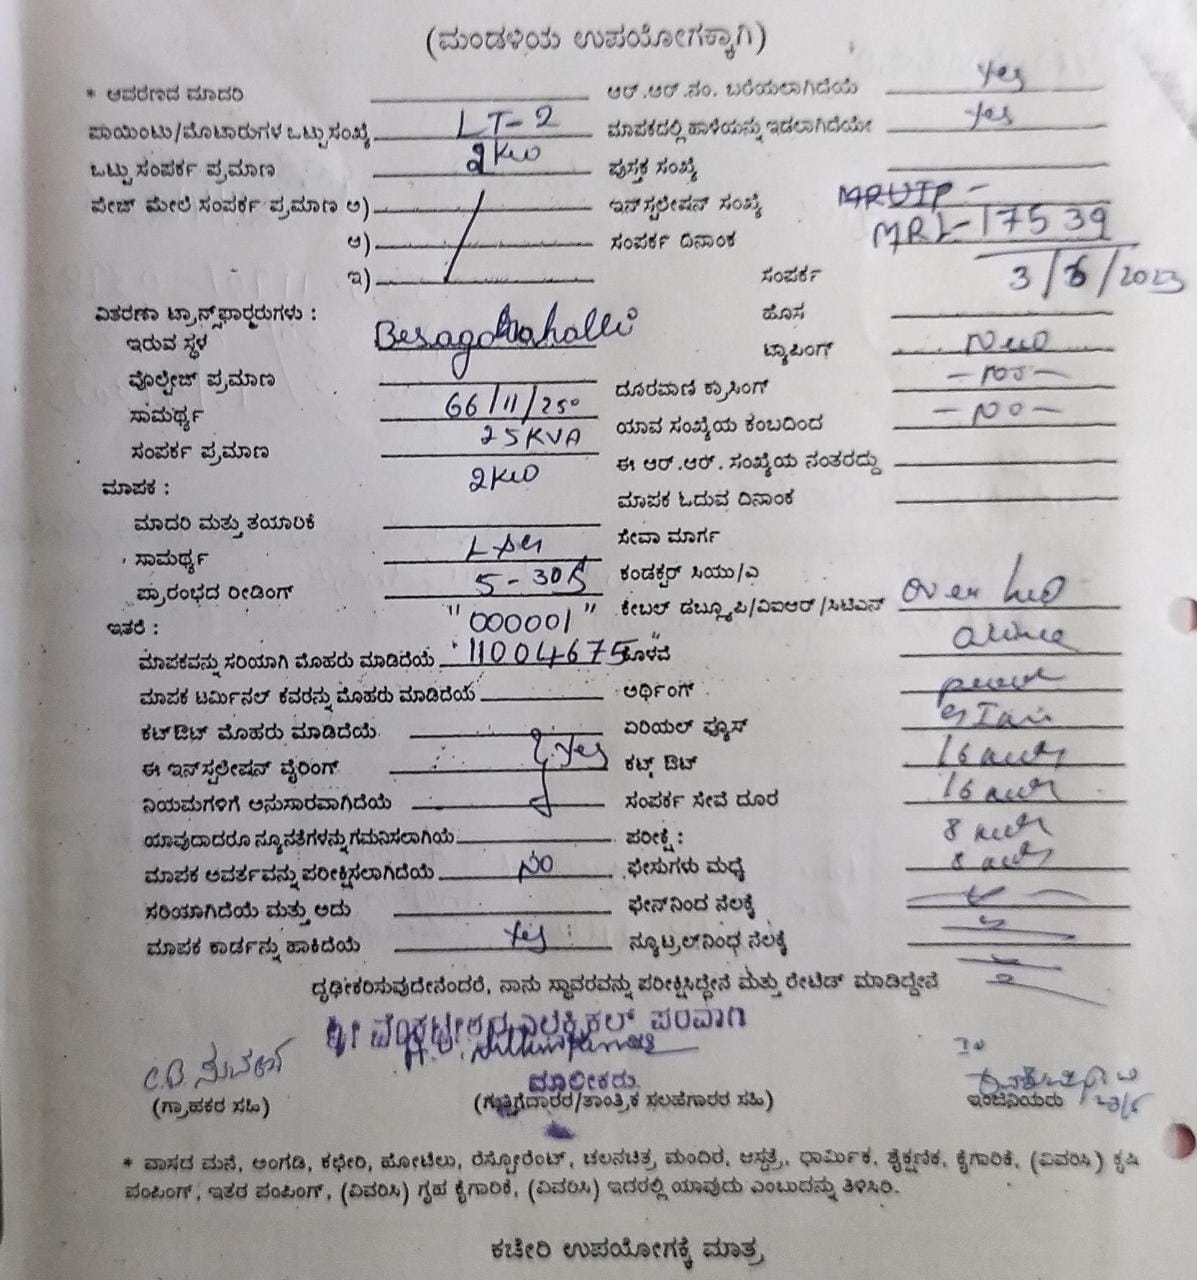 (ಮಂಡಳಿಯ ಉಪಯೋಗಕ್ಕಾಗಿ)
* ಆವರಣದ ಮಾದರಿ ಆರ್.ಆರ್.ನಂ. ಬರೆಯಲಾಗಿದೆಯೆ Yes
ಪಾಯಿಂಟು/ಮೊಟಾರುಗಳ ಒಟ್ಟು ಸಂಖ್ಯೆ LT-2 ಮಾಪಕದಲ್ಲಿ ಹಾಳೆಯನ್ನು ಇಡಲಾಗಿದೆಯೇ Yes
ಒಟ್ಟು ಸಂಪರ್ಕ ಪ್ರಮಾಣ 2KW ಪುಸ್ತಕ ಸಂಖ್ಯೆ
ಪೇಜ್ ಮೇಲೆ ಸಂಪರ್ಕ ಪ್ರಮಾಣ ಅ) ಇನ್‌ಸ್ಟಲೇಷನ್ ಸಂಖ್ಯೆ
ಆ) ಸಂಪರ್ಕ ದಿನಾಂಕ MRL-17539
ಇ) ಸಂಪರ್ಕ 3/6/2023
ವಿತರಣಾ ಟ್ರಾನ್ಸ್‌ಫಾರ್ಮರುಗಳು : ಹೊಸ
ಇರುವ ಸ್ಥಳ ಟ್ಯಾಪಿಂಗ್
ವೊಲ್ಟೇಜ್ ಪ್ರಮಾಣ ದೂರವಾಣಿ ಕ್ರಾಸಿಂಗ್
ಸಾಮರ್ಥ್ಯ 66/11/250 ಯಾವ ಸಂಖ್ಯೆಯ ಕಂಬದಿಂದ -NO-
ಸಂಪರ್ಕ ಪ್ರಮಾಣ 25KVA ಈ ಆರ್.ಆರ್. ಸಂಖ್ಯೆಯ ನಂತರದ್ದು
ಮಾಪಕ : 2KW ಮಾಪಕ ಓದುವ ದಿನಾಂಕ
ಮಾದರಿ ಮತ್ತು ತಯಾರಿಕೆ ಸೇವಾ ಮಾರ್ಗ
ಸಾಮರ್ಥ್ಯ ಕಂಡಕ್ಟರ್ ಸಿಯು/ಎ
ಪ್ರಾರಂಭದ ರೀಡಿಂಗ್ 5-30A ಕೇಬಲ್ ಡಬ್ಲ್ಯೂಪಿ/ವಿಐಆರ್/ಸಿಟಿಎಸ್ over
ಇತರೆ : "000001"
ಮಾಪಕವನ್ನು ಸರಿಯಾಗಿ ಮೊಹರು ಮಾಡಿದೆಯೆ 11004675 ಕೊಳವೆ
ಮಾಪಕ ಟರ್ಮಿನಲ್ ಕವರನ್ನು ಮೊಹರು ಮಾಡಿದೆಯೆ ಅರ್ಥಿಂಗ್
ಕಟ್‌ಔಟ್ ಮೊಹರು ಮಾಡಿದೆಯೆ ಏರಿಯಲ್ ಫ್ಯೂಸ್
ಈ ಇನ್‌ಸ್ಟಲೇಷನ್ ವೈರಿಂಗ್ Yes ಕಟ್ಸ್ ಔಟ್ 16
ನಿಯಮಗಳಿಗೆ ಅನುಸಾರವಾಗಿದೆಯೆ ಸಂಪರ್ಕ ಸೇವೆ ದೂರ 16
ಯಾವುದಾದರೂ ನ್ಯೂನತೆಗಳನ್ನು ಗಮನಿಸಲಾಗಿಯೆ ಪರೀಕ್ಷೆ : 8
ಮಾಪಕ ಅವರ್ತವನ್ನು ಪರೀಕ್ಷಿಸಲಾಗಿದೆಯೆ NO ಫೇಸುಗಳು ಮಧ್ಯೆ 8
ಸರಿಯಾಗಿದೆಯೆ ಮತ್ತು ಅದು ಫೇಸ್‌ನಿಂದ ನೆಲಕ್ಕೆ
ಮಾಪಕ ಕಾರ್ಡನ್ನು ಹಾಕಿದೆಯೆ Yes ನ್ಯೂಟ್ರಲ್‌ನಿಂಧ ನೆಲಕ್ಕೆ
ದೃಢೀಕರಿಸುವುದೇನೆಂದರೆ, ನಾನು ಸ್ಥಾವರವನ್ನು ಪರೀಕ್ಷಿಸಿದ್ದೇನೆ ಮತ್ತು ರೇಟೆಡ್ ಮಾಡಿದ್ದೇನೆ
ಶ್ರೀ ವೆಂಕಟೇಶ್ವರ ಎಲೆಕ್ಟ್ರಿಕಲ್ ಪರವಾಗಿ
ಮಾಲೀಕರು
(ಗ್ರಾಹಕರ ಸಹಿ) (ಗುತ್ತಿಗೆದಾರರ/ತಾಂತ್ರಿಕ ಸಲಹೆಗಾರರ ಸಹಿ) ಇಂಜಿನಿಯರು
* ವಾಸದ ಮನೆ, ಅಂಗಡಿ, ಕಛೇರಿ, ಹೋಟೆಲು, ರೆಸ್ಟೋರೆಂಟ್, ಚಲನಚಿತ್ರ ಮಂದಿರ, ಆಸ್ಪತ್ರೆ, ಧಾರ್ಮಿಕ, ಶೈಕ್ಷಣಿಕ, ಕೈಗಾರಿಕೆ, (ವಿವರಿಸಿ) ಕೃಷಿ
ಪಂಪಿಂಗ್, ಇತರ ಪಂಪಿಂಗ್, (ವಿವರಿಸಿ) ಗೃಹ ಕೈಗಾರಿಕೆ, (ವಿವರಿಸಿ) ಇದರಲ್ಲಿ ಯಾವುದು ಎಂಬುದನ್ನು ತಿಳಿಸಿರಿ.
ಕಚೇರಿ ಉಪಯೋಗಕ್ಕೆ ಮಾತ್ರ